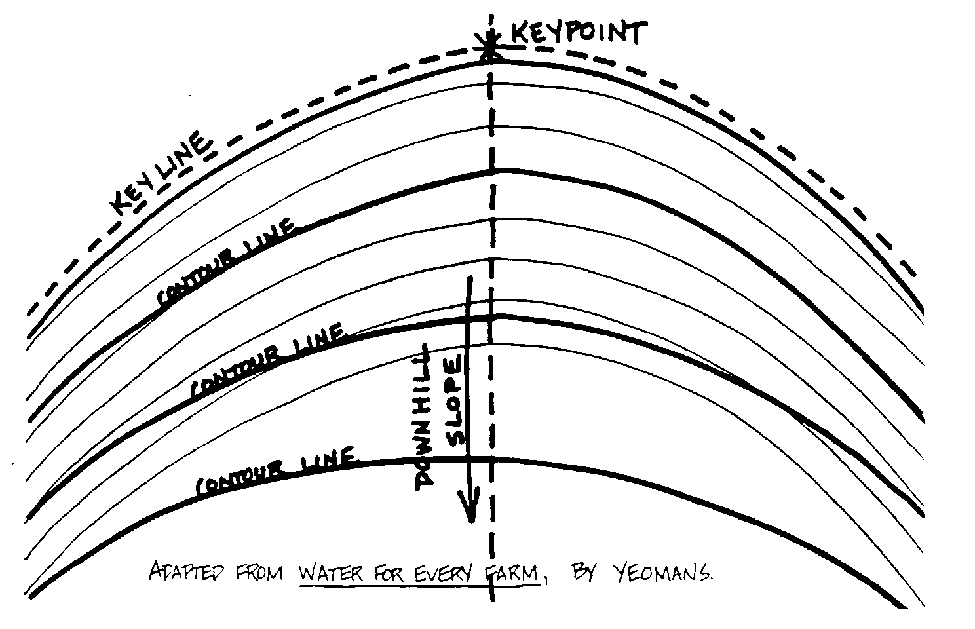 KEYPOINT
KEYLINE
CONTOUR LINE
CONTOUR LINE
DOWNHILL
SLOPE
CONTOUR LINE
ADAPTED FROM WATER FOR EVERY FARM, BY YEOMANS.